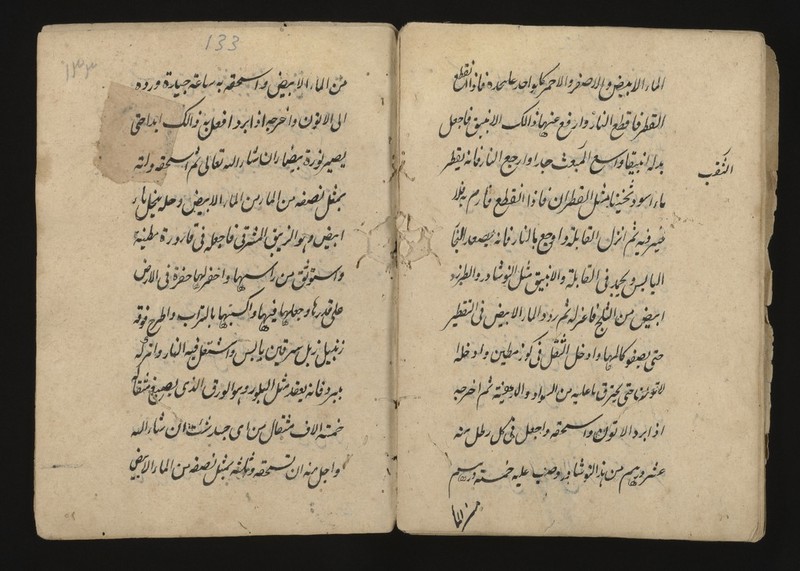 الماء الابيض والاصفر والاحمر كل واحد عليحده فاذا انقطع
القطر فاقطع النار وارفع عنها ذالك الانبيق فاجعل
بدله انبيقا واسع المبعث جدا وارجع النار فانه يقطر
ماء اسود ثخينا مثل القطران فاذا انقطع فارم به فلا
خير فيه ثم انزل القابلة وارجع بالنار فانه يصعد
اليابس ويجد في القابلة والانبيق مثل النوشادر والطبرزد
ابيض من الثلج فاعزله ثم ردد الماء الابيض في التقطير
حتى يصفو كالمها وادخل الثفل في كوز مطين وادخله
حتى يحترق ما عليه من السواد والادهنية ثم اخرجه
اذا ابرد الاتون واسحقه واجعل في كل رطل منه
عشر دراهم من هذا النوشادر وصب عليه خمسة دراهم
من الماء
الثقب
133
١٣٣
من الماء الابيض واسحقه به ساعة جيدة ورده
الى الاتون واخرجه اذا برد افعل به ذالك ابدا حتى
يصير نورة بيضا ان شاء الله تعالى ثم اسحقه ولته
بمثل نصفه من الماء من الماء الابيض وحله ينحل ماء
ابيض وهو الزيبق المشرقي فاجعله في قارورة مطينة
واستوثق من راسها واحفر لها حفرة في الارض
على قدرها وجعلها فيها واكبسها بالتراب واطرح فوقه
زنبيل زبل سرقين يابس واشتعل فيه النار واتركه
يبرد فانه يعقد مثل البلور وهو الورق الذي يصبغ مثقاله
خمسة الاف مثقال من اى جسد شئت ان شاء الله
واجل منه ان تسحقه وتلته بمثل نصفه من الماء الابيض